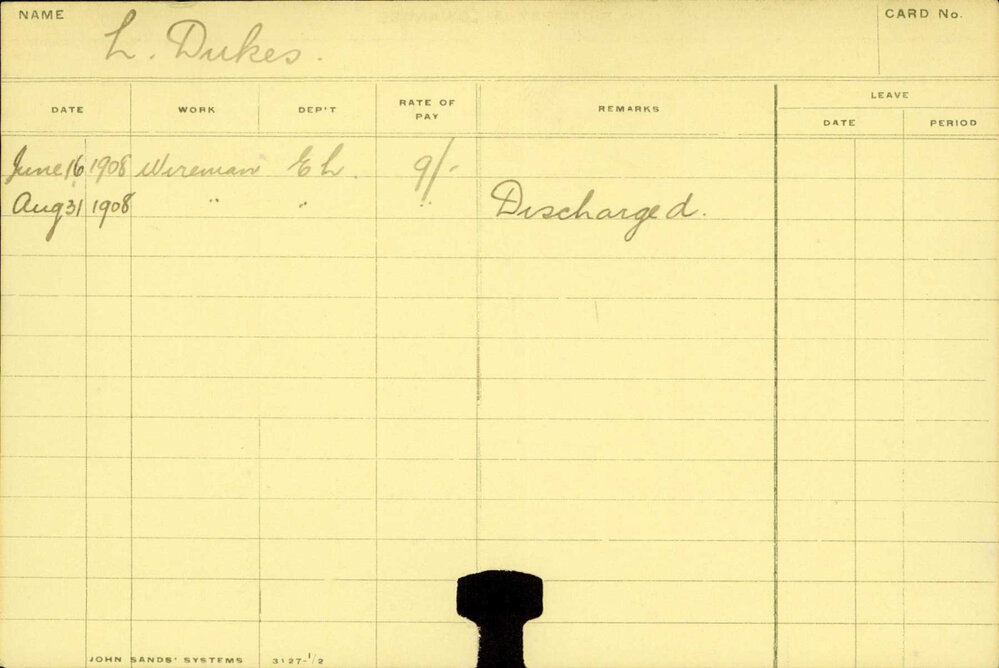 NAME CARD No.
L. Dukes.
DATE WORK DEP'T RATE OF PAY REMARKS LEAVE
DATE PERIOD
June 16 1908 Wireman E L. 9/-
Aug 31 1908 " " " Discharged.
JOHN SANDS' SYSTEMS 3127-1/2